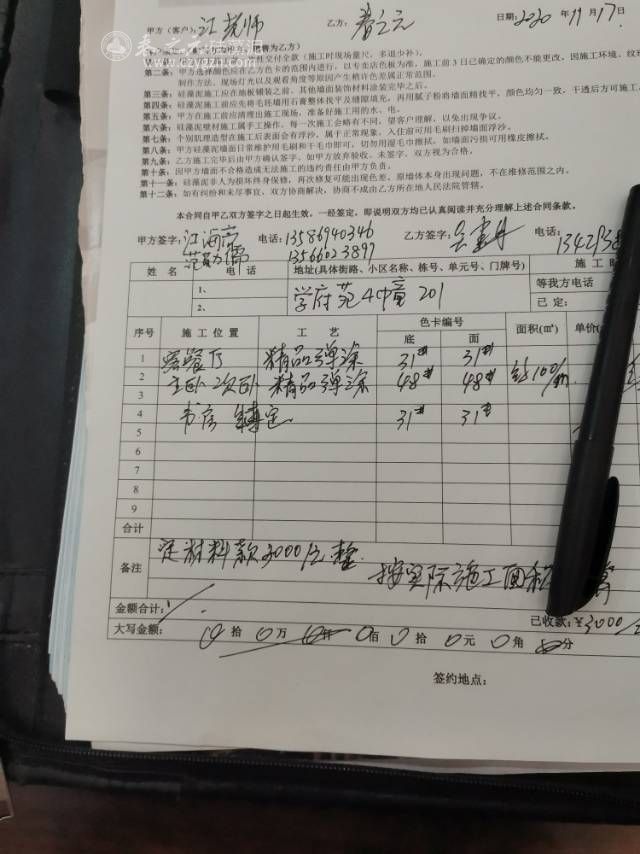 甲方（客户）：江老师 乙方：春之元 日期：2020年11月17日
春之元硅藻泥
www.czyqzn.cn
第二条：甲方选择颜色应在乙方色卡的范围内进行，以专卖店色板为准，施工前3日已确定的颜色不能更改，因施工环境、纹
制作方法、现场灯光以及观看角度等原因产生稍许色差属正常范围。
第三条：硅藻泥施工应在地板铺装之前、其他墙面装饰材料涂装完毕之后。
第四条：硅藻泥施工前应先将毛坯墙用石膏整体找平及缝隙填充，再用腻子粉将墙面精找平，颜色均匀一致，干透后方可施工
第五条：甲方在施工前应清理出施工现场，准备好施工用的水、电。
第六条：硅藻泥壁材施工属于手工操作，每一次施工会略有不同，望客户理解，以免出现争议。
第七条：个别肌理造型在施工后表面会有浮沙，属于正常现象，入住前可用毛刷扫掉墙面浮沙。
第八条：甲方硅藻泥墙面日常维护用毛刷和干毛巾即可，切勿用湿毛巾擦拭，如墙面污损可用橡皮擦拭。
第九条：乙方施工完毕后由甲方确认签字，如甲方放弃验收、未签字，双方视为合格。
第十条：因甲方墙面不合格造成无法施工的违约责任由甲方负责。
第十一条：硅藻泥非人为损坏终身保修，再次修复可能出现色差，原墙体本身出现问题，不在维修范围之内。
第十二条：如有纠纷和未尽事宜，双方协商解决，协商不成由乙方所在地人民法院管辖。
本合同自甲乙双方签字之日起生效，一经签定，即说明双方均已认真阅读并充分理解上述合同条款。
甲方签字：江海 电话：13586940346 乙方签字： 电话：
13566023897
姓 名 电 话 地址(具体街路、小区名称、栋号、单元号、门牌号) 施工时
1、 学府苑4幢201 等我方电话
2、 已定：
序号 施工位置 工 艺 色卡编号 面积(㎡) 单价
底 面
1 客餐厅 精品弹涂 31# 31#
2 主卧 次卧 精品弹涂 48# 48# 100/m
3
4 书房 待定 31# 31#
5
6
7
8
9
合计
备注 定材料款3000元整
按实际施工面积 算
金额合计：
大写金额： 0 拾 0 万 0 仟 0 佰 0 拾 0 元 0 角 0 分 已收款：¥3000
签约地点：